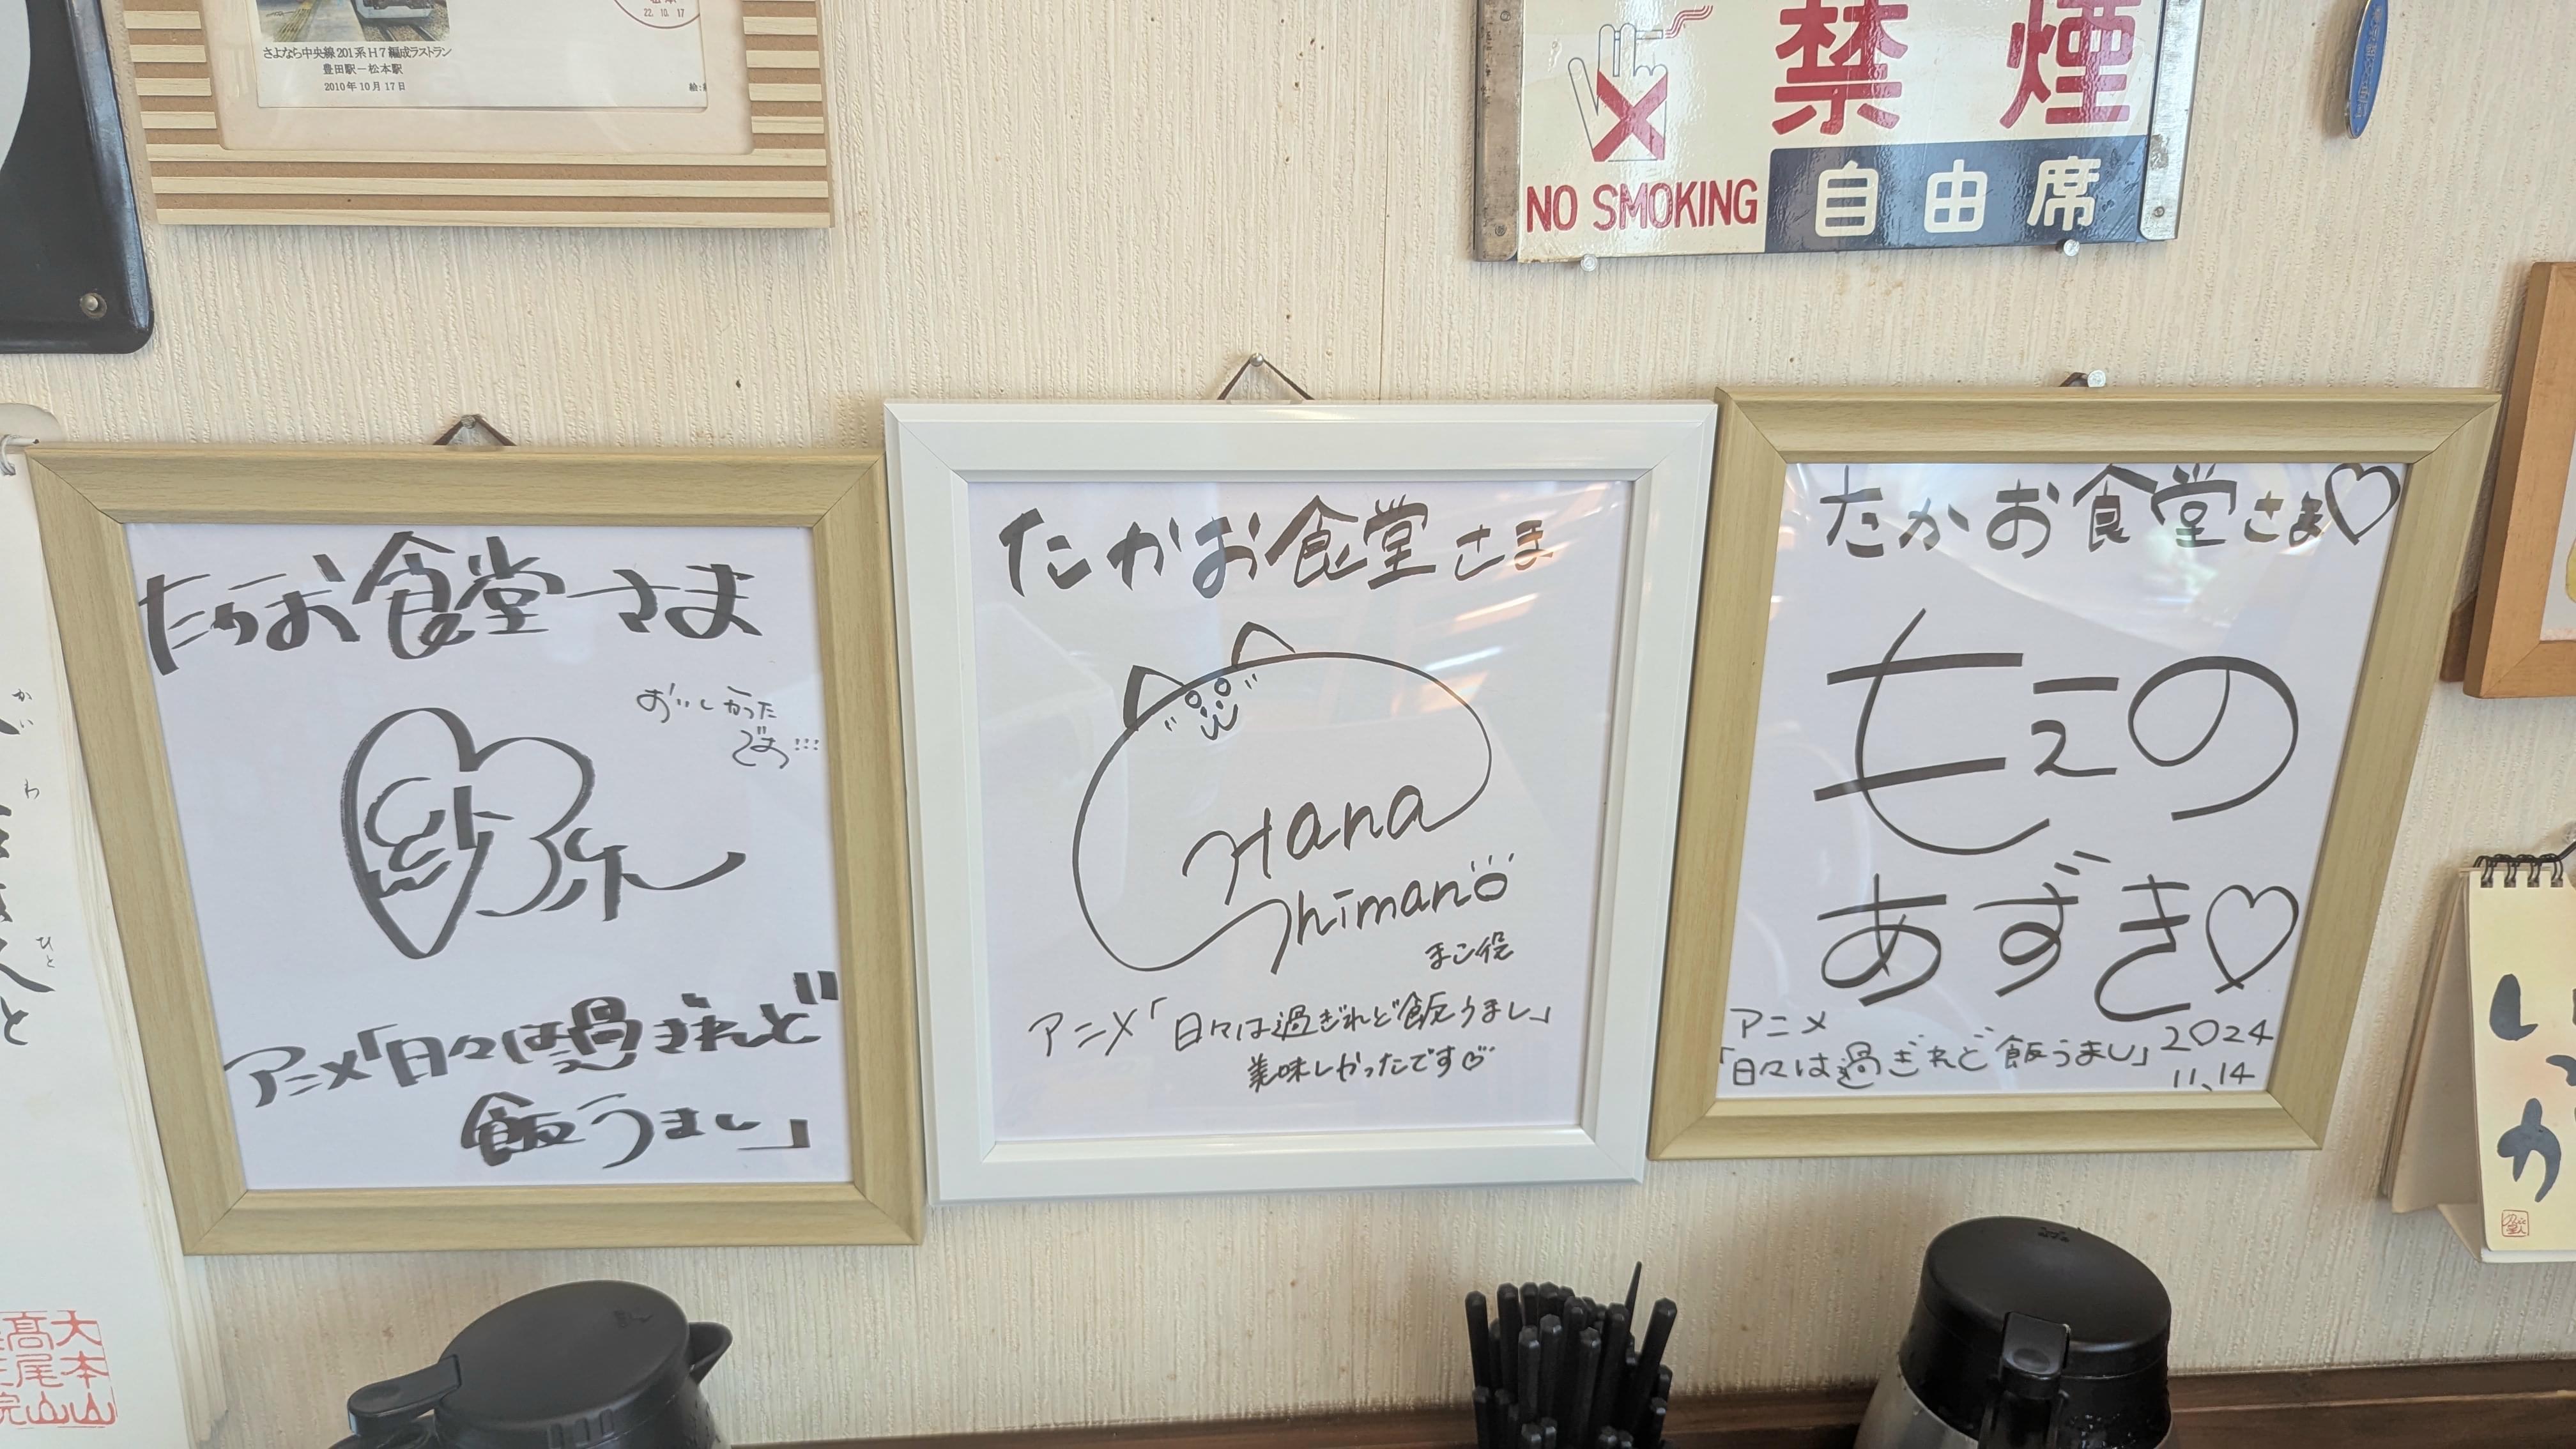 22.10.17
さよなら中央線201系H7編成ラストラン
豊田駅－松本駅
2010年10月17日
禁煙
NO SMOKING
自由席
たかお食堂さま
おいしかった
です!!!
紗弥
アニメ「日々は過ぎれど
飯うまし」
たかお食堂さま
Hana
Shimano
まこ役
アニメ「日々は過ぎれど飯うまし」
美味しかったです♡
たかお食堂さま♡
もえの
あずき♡
アニメ
「日々は過ぎれど飯うまし」
2024
11.14
かいわ
ひと
と
大本山
高尾山
いつか